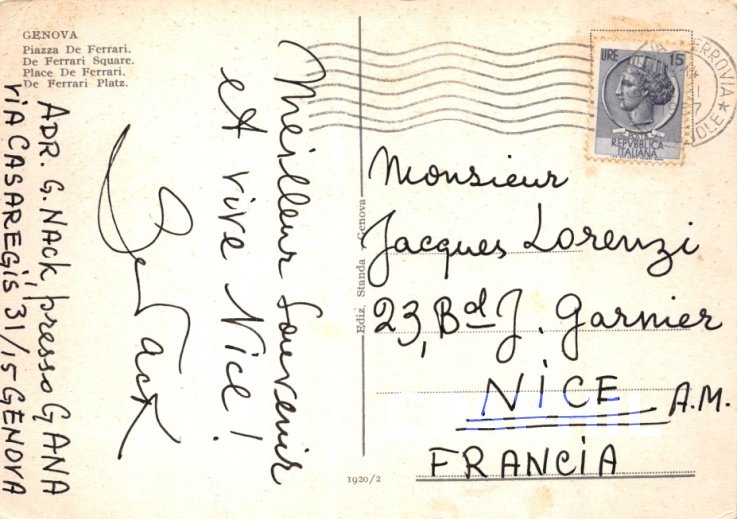 GENOVA
Piazza De Ferrari.
De Ferrari Square.
Place De Ferrari.
De Ferrari Platz.
ADR. G. NACK, presso GANA
VIA CASAREGIS 31/15 GENOVA
Meilleur Souvenir
et vive Nice!
Nack
Ediz. Standa - Genova
1920/2
LIRE 15
POSTE
REPVBBLICA
ITALIANA
FERROVIA
Monsieur
Jacques Lorenzi
23, Bd J. Garnier
NICE A.M.
FRANCIA